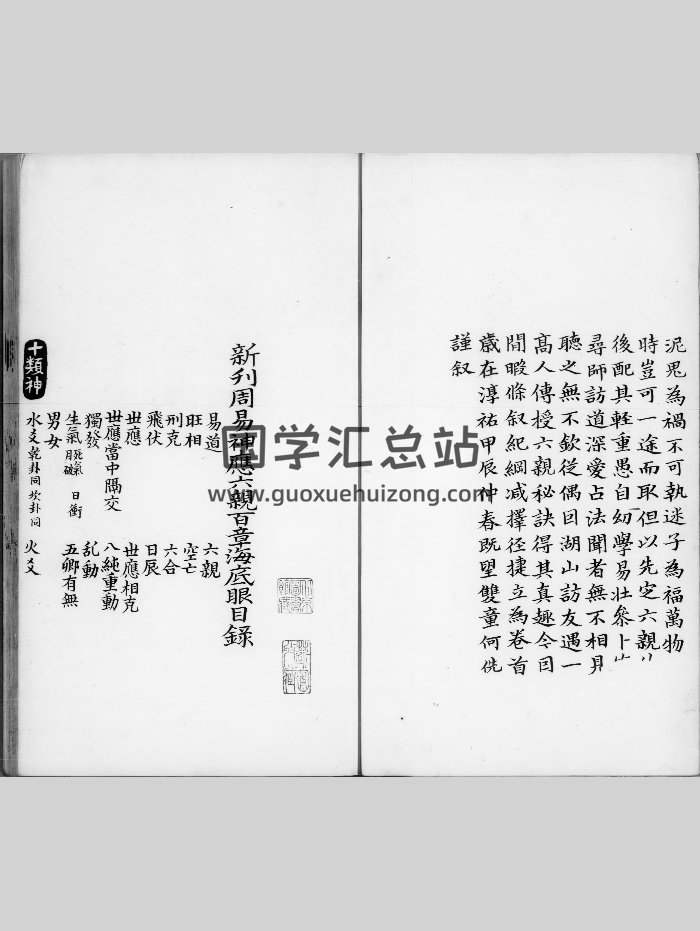 泥鬼為禍不可執迷子為福萬物
時豈可一途而取但以先定六親
後配其輕重愚自幼學易壯參卜
尋師訪道深爱占法聞者無不相見
聴之無不欽從偶因湖山訪友遇一
高人傳授六親秘訣得其真趣今因
閒暇條叙紀綱减擇径捷立為卷首
歳在淳祐甲辰仲春既望雙童何侁
謹叙
新刋周易神應六親百章海底眼目錄
易道 六親
旺相 空亡
刑克 六合
飛伏 日辰
世應 世應相克
世應當中隔交 八純重動
獨發 乱動
生氣 死氣 月破 日衝 五鄉有無
男女
水爻 乾卦同 坎卦同 火爻
十類神
国学汇总站
www.guoxuehuizong.com